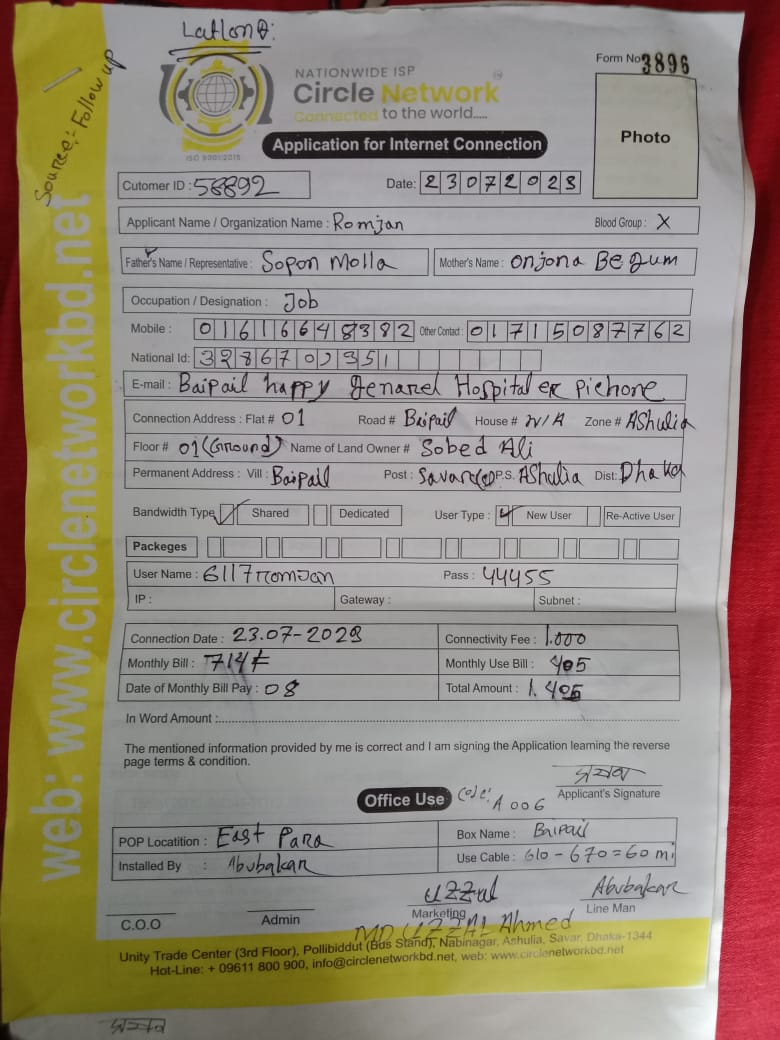 Latlong:
Source:- Follow up
NATIONWIDE ISP
Circle Network
Connected to the world.....
ISO 9001:2015
Form No 3896
Application for Internet Connection
Photo
Cutomer ID : 58892
Date: 23072023
Applicant Name / Organization Name : Romjan Blood Group : X
Father's Name / Representative : Sopon Molla Mother's Name : onjona Begum
Occupation / Designation : Job
Mobile : 01616648382 Other Contact : 01715087762
National Id:
E-mail : Baipail happy Genarel Hospital er pichone
Connection Address : Flat # 01 Road # Baipail House # N/A Zone # AShulia
Floor # 01 (Ground) Name of Land Owner # Sobed Ali
Permanent Address : Vill : Baipail Post : Savar P.S. AShulia Dist: Dhaka
Bandwidth Type Shared Dedicated User Type : New User Re-Active User
Packeges
User Name : 6117romjan Pass : 44455
IP : Gateway : Subnet :
Connection Date : 23.07-2023 Connectivity Fee : 1.000
Monthly Bill : 714 Monthly Use Bill : 405
Date of Monthly Bill Pay : 08 Total Amount : 1.405
In Word Amount :
The mentioned information provided by me is correct and I am signing the Application learning the reverse
page terms & condition.
রমজান
Applicant's Signature
Office Use Code: A 006
POP Locatition : East Para Box Name : Baipail
Installed By : Abubakar Use Cable : 610-670=60 mi
Uzzal Abubakar
C.O.O Admin Marketing Line Man
MD UZZAL Ahmed
Unity Trade Center (3rd Floor), Pollibiddut (Bus Stand), Nabinagar, Ashulia, Savar, Dhaka-1344
Hot-Line: + 09611 800 900, info@circlenetworkbd.net, web: www.circlenetworkbd.net
web: www.circlenetworkbd.net
রমজান